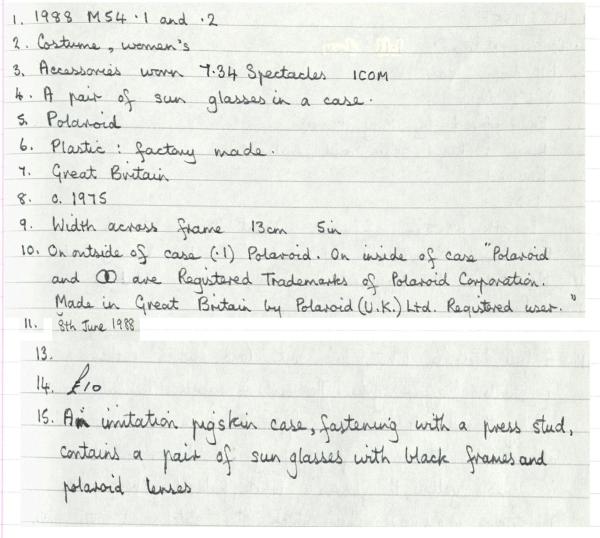 1. 1988 M54 .1 and .2
2. Costume, women's
3. Accessories worn 7.34 Spectacles ICOM
4. A pair of sun glasses in a case.
5. Polaroid
6. Plastic : factory made.
7. Great Britain
8. c. 1975
9. Width across frame 13cm 5in
10. On outside of case (.1) Polaroid. On inside of case "Polaroid
and are Registered Trademarks of Polaroid Corporation.
Made in Great Britain by Polaroid (U.K.) Ltd. Registered user."
11. 8th June 1988
13.
14. £10
15. An imitation pigskin case, fastening with a press stud,
contains a pair of sun glasses with black frames and
polaroid lenses